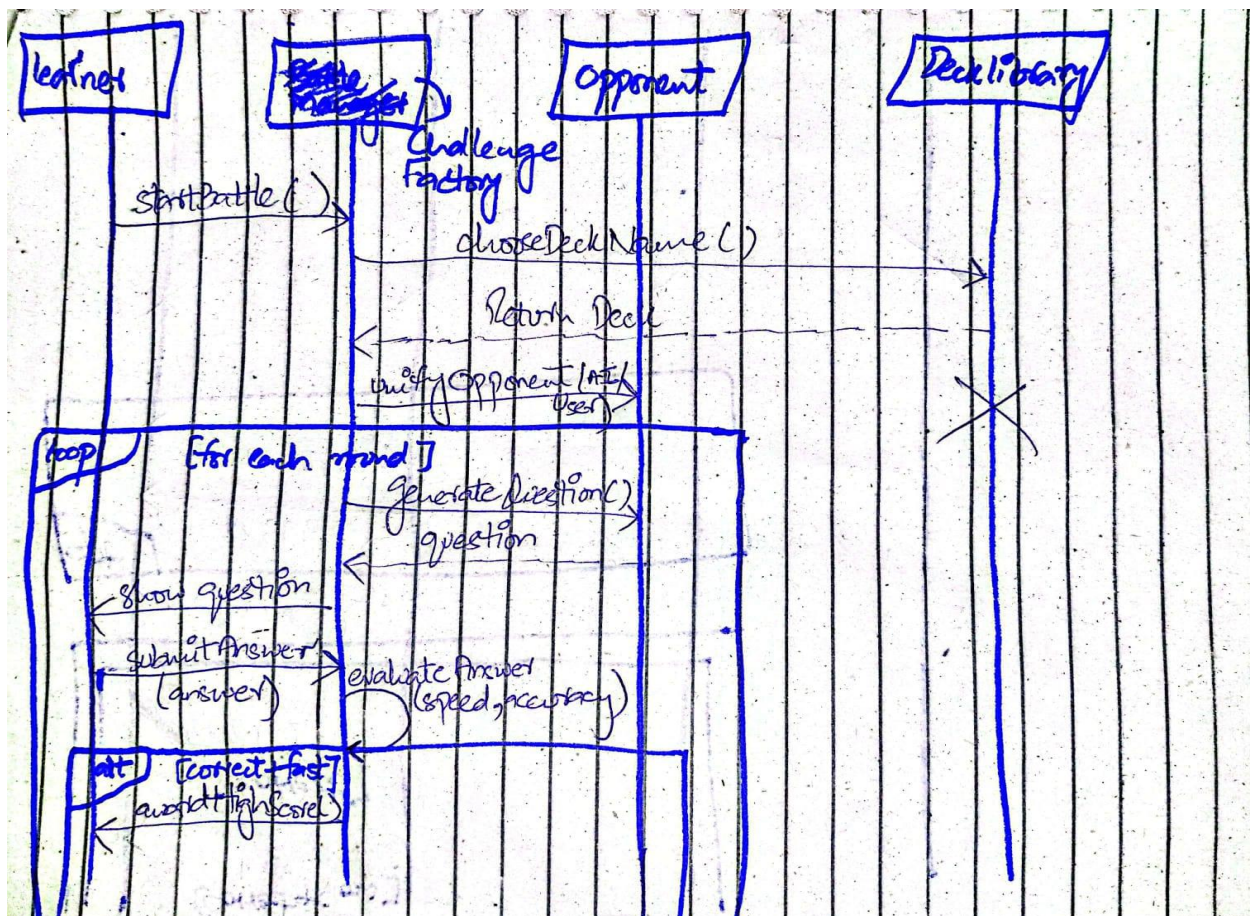 learner
opponent
Decklibrary
Challenge
Factory
startBattle()
chooseDeckName()
Return Deck
Opponent (AI/
User)
loop [for each round]
generateQuestion()
question
show question
submitAnswer
(answer)
evaluate Answer
(speed, accuracy)
alt [correct+fast]
awardHighScore()